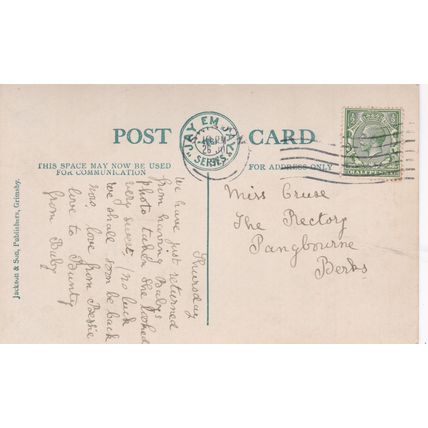 POST CARD
"JAY EM JAY" SERIES
THIS SPACE MAY NOW BE USED
FOR COMMUNICATION
FOR ADDRESS ONLY
HALFPENNY
Jackson & Son, Publishers, Grimsby.
Thursday
We have just returned
from having Baby's
photo taken she looked
very sweet, no luck
we shall soon be back
now, love from Bessie
love to Bunty
from Baby
Miss Cruse
The Rectory
Pangbourne
Berks